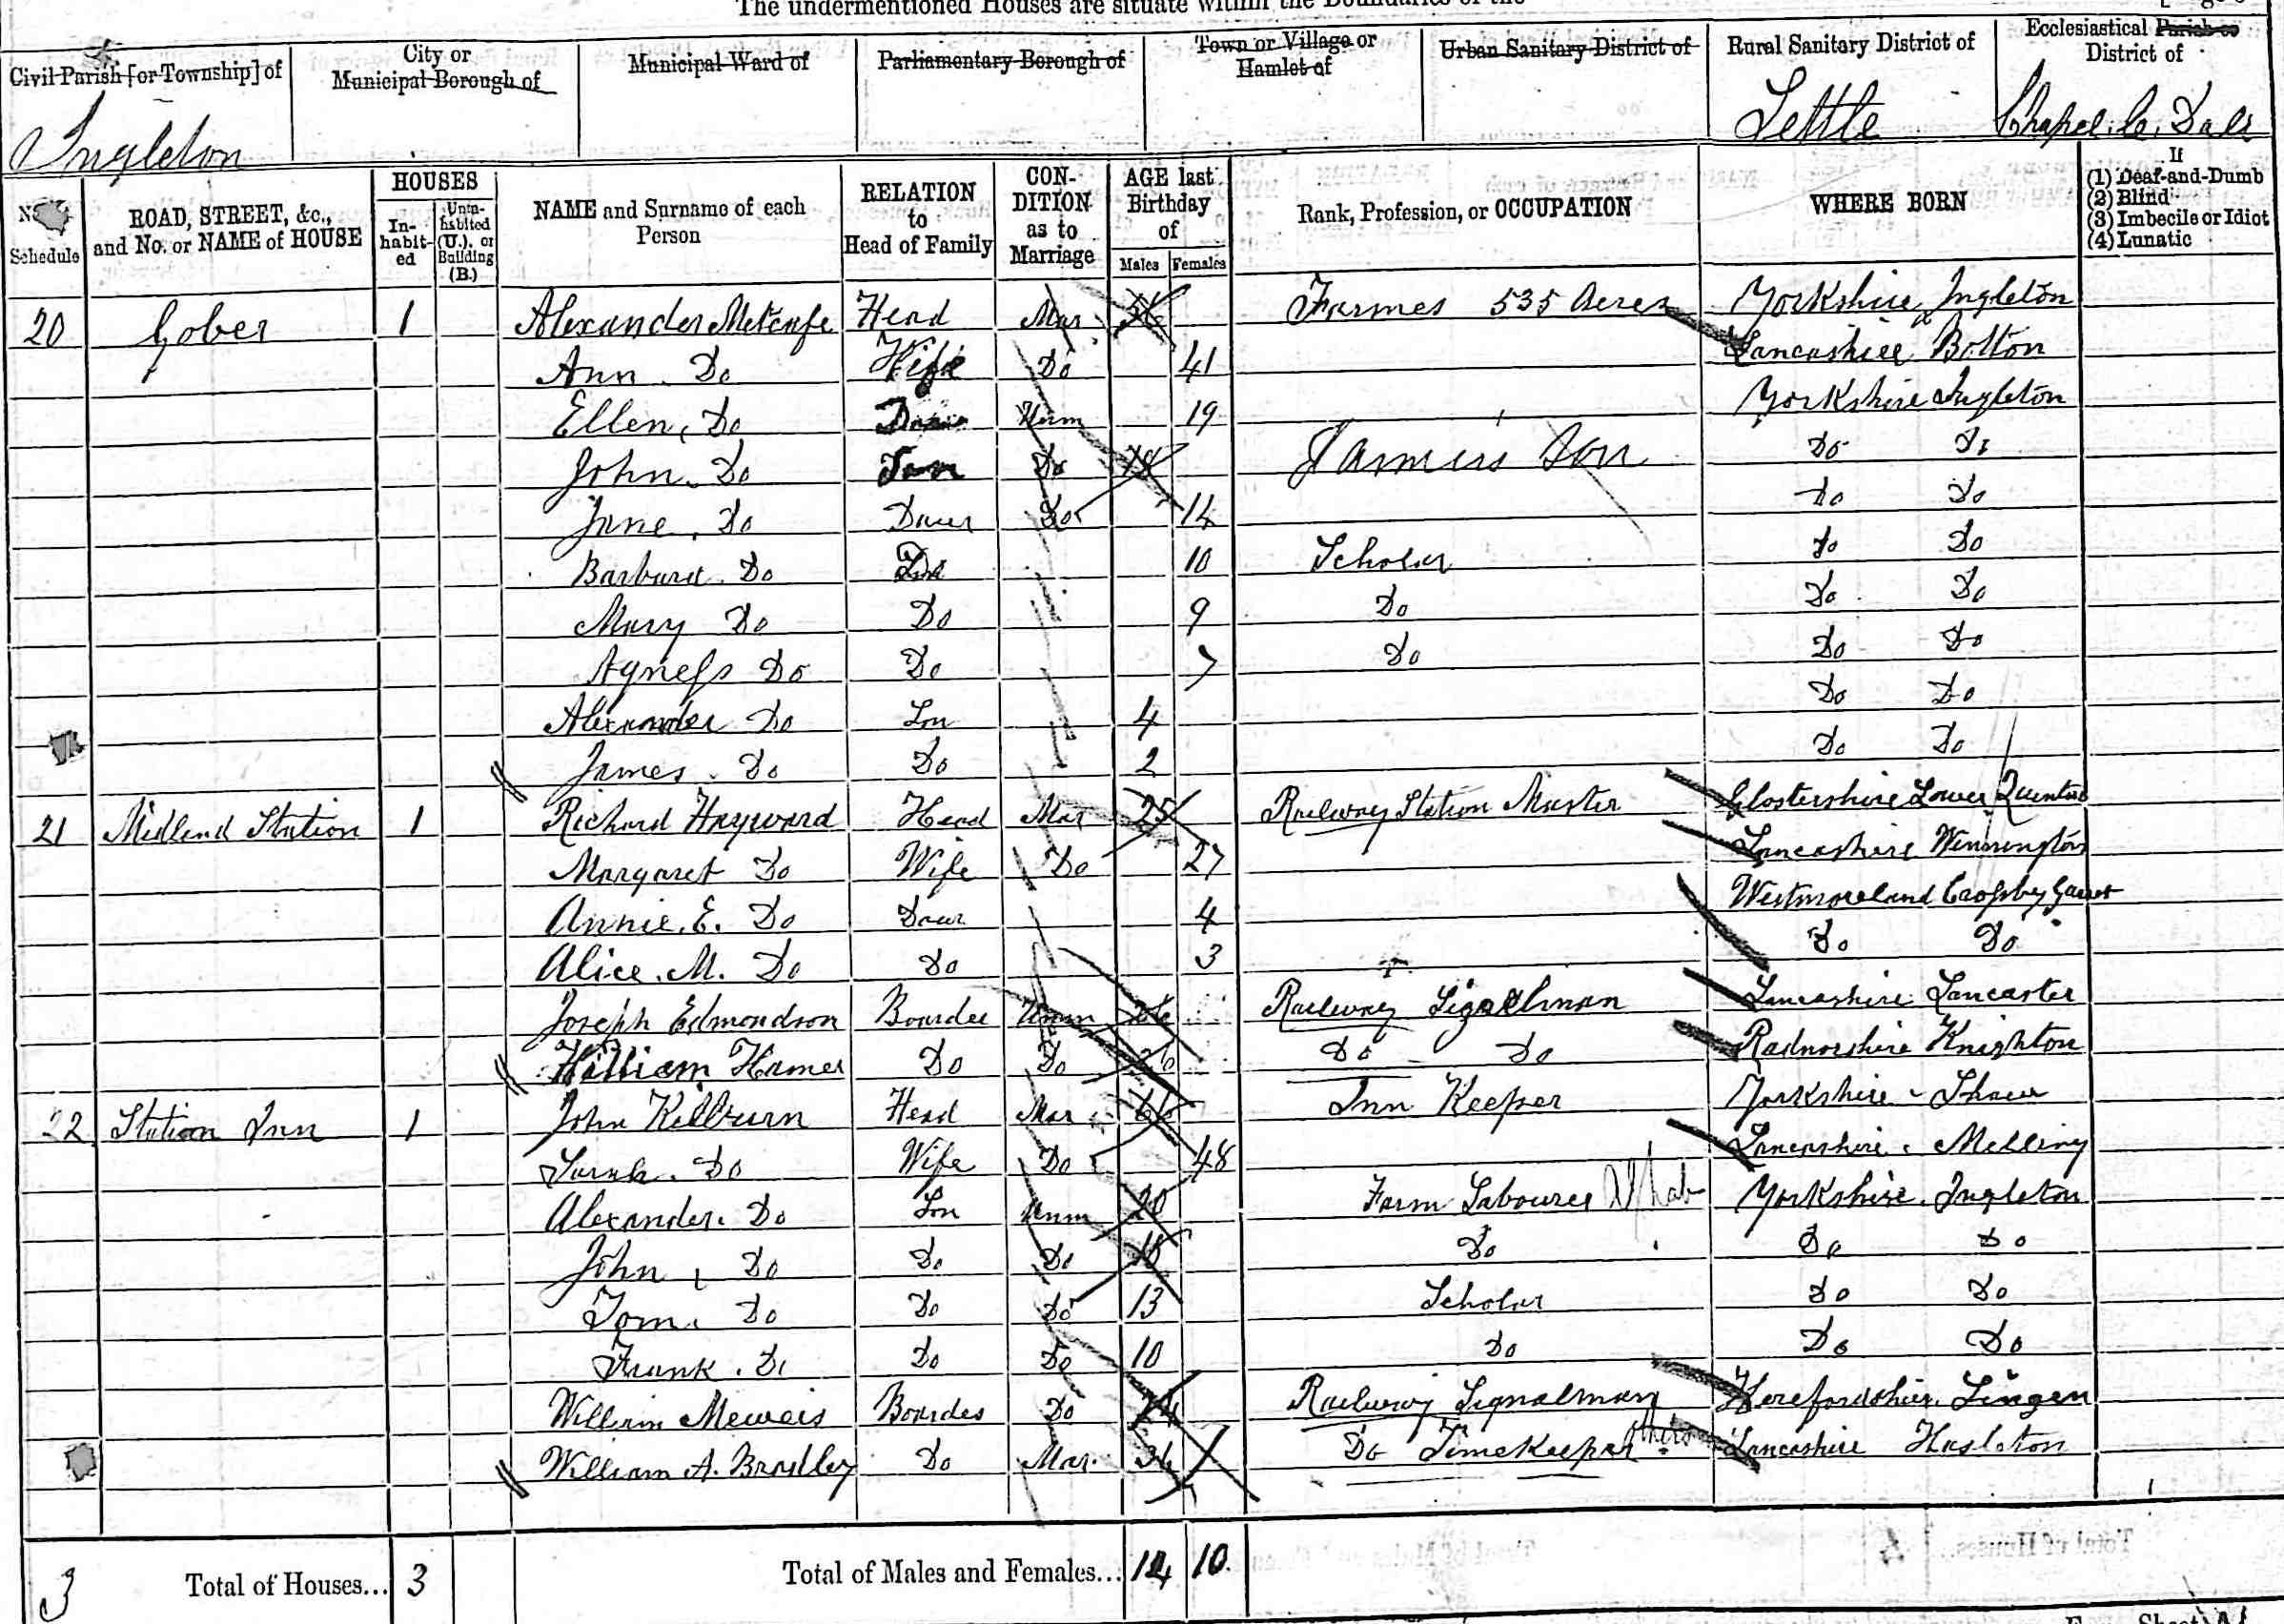 The undermentioned Houses are situate within the Boundaries of the
Civil Parish [or Township] of City or Municipal Borough of Municipal Ward of Parliamentary Borough of Town or Village or Hamlet of Urban Sanitary District of Rural Sanitary District of Ecclesiastical Parish or District of
Ingleton Settle Chapel. le. Dale
No. Schedule ROAD, STREET, &c., and No. or NAME of HOUSE HOUSES In-habit-ed Unin-habited (U.), or Building (B.) NAME and Surname of each Person RELATION to Head of Family CON-DITION as to Marriage AGE last Birthday of Males Females Rank, Profession, or OCCUPATION WHERE BORN If (1) Deaf-and-Dumb (2) Blind (3) Imbecile or Idiot (4) Lunatic
20 Gober 1 Alexander Metcafe Head Mar Farmer 535 Acres Yorkshire Ingleton
Ann Do Wife Do 41 Lancashire Bolton
Ellen, Do Unm 19 Yorkshire Ingleton
John. Do Son Do Farmers Son Do Do
Jane, Do Daur Do 14 Do Do
Barbara. Do 10 Scholar Do Do
Mary Do Do 9 Do Do Do
Agness Do Do 7 Do Do Do
Alexander Do Son 4 Do Do
James. Do Do 2 Do Do
21 Midland Station 1 Richard Hayward Head Mar 25 Railway Station Master Glostershire Lower Quinton
Margaret Do Wife Do 27 Lancashire Wennington
Annie. E. Do Daur 4 Westmoreland Crossby Garret
Alice. M. Do Do 3 Do Do
Joseph Edmondson Boarder Unm 26 Railway Signalman Lancashire Lancaster
William Hamer Do Do 26 Do Do Radnorshire Knighton
22 Station Inn 1 John Kilburn Head Mar Inn Keeper Yorkshire Shaw
Sarah. Do Wife Do 48 Lancashire. Melling
Alexander. Do Son Unm 20 Farm Labourer Yorkshire. Ingleton
John, Do Do Do Do Do Do
Tom. Do Do Do 13 Scholar Do Do
Frank. Do Do Do 10 Do Do Do
William Boarder Do 24 Railway Signalman Herefordshire. Lingen
William A. Bradley Do Mar. 36 Do Timekeeper others Lancashire
3 Total of Houses... 3 Total of Males and Females... 14 10.